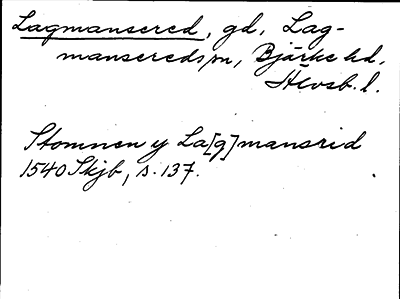 Lagmansered, gd, Lag-
mansereds sn, Bjärke hd,
Älvsb. l.
Stomnen y La[g]mansrid
1540 Skjb, s. 137.